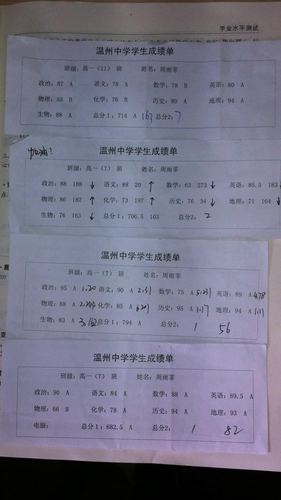 学业水平测试
温州中学学生成绩单
班级：高一（11） 班 姓名：周雨菲
政治：87 A 语文：78 A 数学：78 B 英语：80 A
物理：53 B 化学：76 B 历史：80 A 地理：94 A
生物：88 A 总分1：714 A 167 总分2：7
加油！
温州中学学生成绩单
班级：高一（7） 班 姓名：周雨菲
政治：88 188 ↓ 语文：88 20 ↑ 数学：63 273 ↓ 英语：85.5 183
物理：86 182 ↑ 化学：73 197 ↑ 历史：76 34 ↓ 地理：71 164 ↓
生物：76 163 ↓ 总分1：706.5 103 总分2： 2
温州中学学生成绩单
班级：高一（7） 班 姓名：周雨菲
政治：95 A 语文：90 A 数学：75 A 英语：89 A
物理：88 A 化学：85 A 历史：95 A 地理：94 A
生物：83 A 总分1：794 A 总分2： 1 56
温州中学学生成绩单
班级：高一（7） 班 姓名：周雨菲
政治：90 A 语文：84 A 数学：88 A 英语：89.5 A
物理：66 B 化学：78 A 历史：94 A 地理：93 A
电脑： 总分1：682.5 A 总分2： 1 82